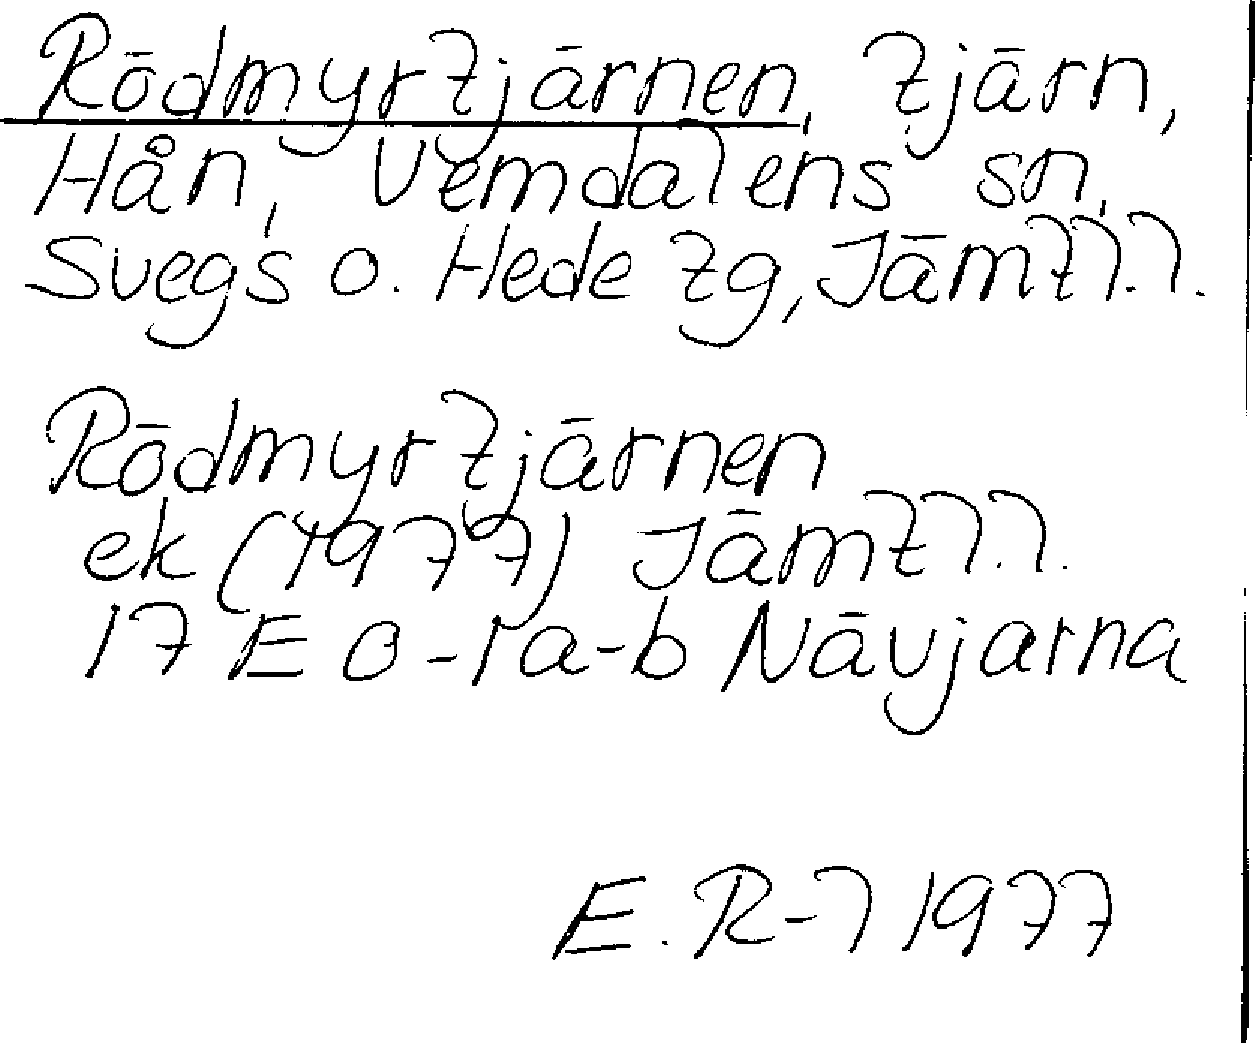 Rödmyrtjärnen, tjärn,
Hån, Vemdalens sn,
Svegs o. Hede tg, Jämtl.l.
Rödmyrtjärnen
ek (1977) Jämtl.l.
17 E 0-1a-b Nävjarna
E. R-l 1977